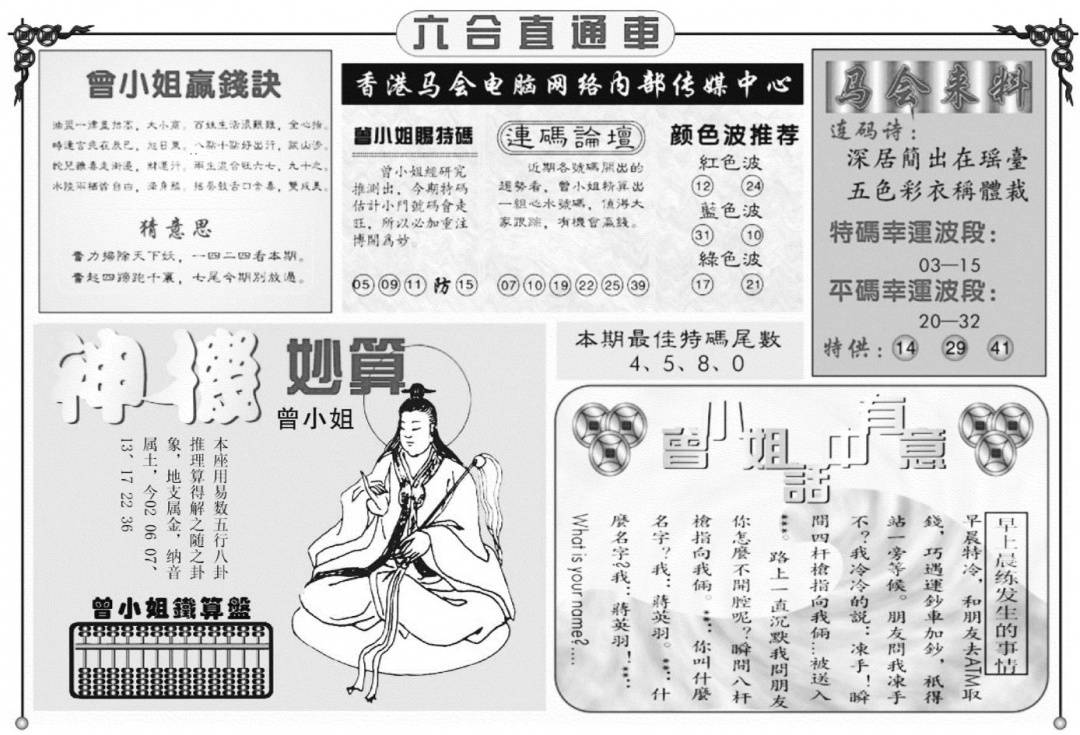 六合直通車
曾小姐贏錢訣
猜意思
奮力掃除天下妖，一四二四看本期。
奮起四蹄跑千裏，七尾今期別放過。
香港马会电脑网络内部传媒中心
曾小姐賜特碼
曾小姐經研究
推測出，今期特码
估計小門號碼會走
旺，所以必加重注
博開爲妙。
05 09 11 防 15
連碼論壇
近期各號碼開出的
趨勢看，曾小姐精算出
一組心水號碼，值得大
家跟踪，有機會贏錢。
07 10 19 22 25 39
颜色波推荐
紅色波
12 24
藍色波
31 10
綠色波
17 21
马会来料
连码诗：
深居簡出在瑶臺
五色彩衣稱體裁
特碼幸運波段：
03—15
平碼幸運波段：
20—32
特供：14 29 41
本期最佳特碼尾數
4、5、8、0
神機妙算
曾小姐
本座用易数五行八卦
推理算得解之随之卦
象，地支属金，纳音
属土，今02 06 07、
13、17 22 36
曾小姐鐵算盤
曾小姐中有意
話
早上晨练发生的事情
早晨特冷，和朋友去ATM取
錢，巧遇運鈔車加鈔，祇得
站一旁等候。朋友問我凍手
不？我冷冷的説：凍手！瞬
間四杆槍指向我俩…被送入
***。路上一直沉默我問朋友
你怎麽不開腔呢？瞬間八杆
槍指向我俩。**：你叫什麽
名字？我：蔣英羽。**：什
麽名字？我：蔣英羽！**：
What is your name?……